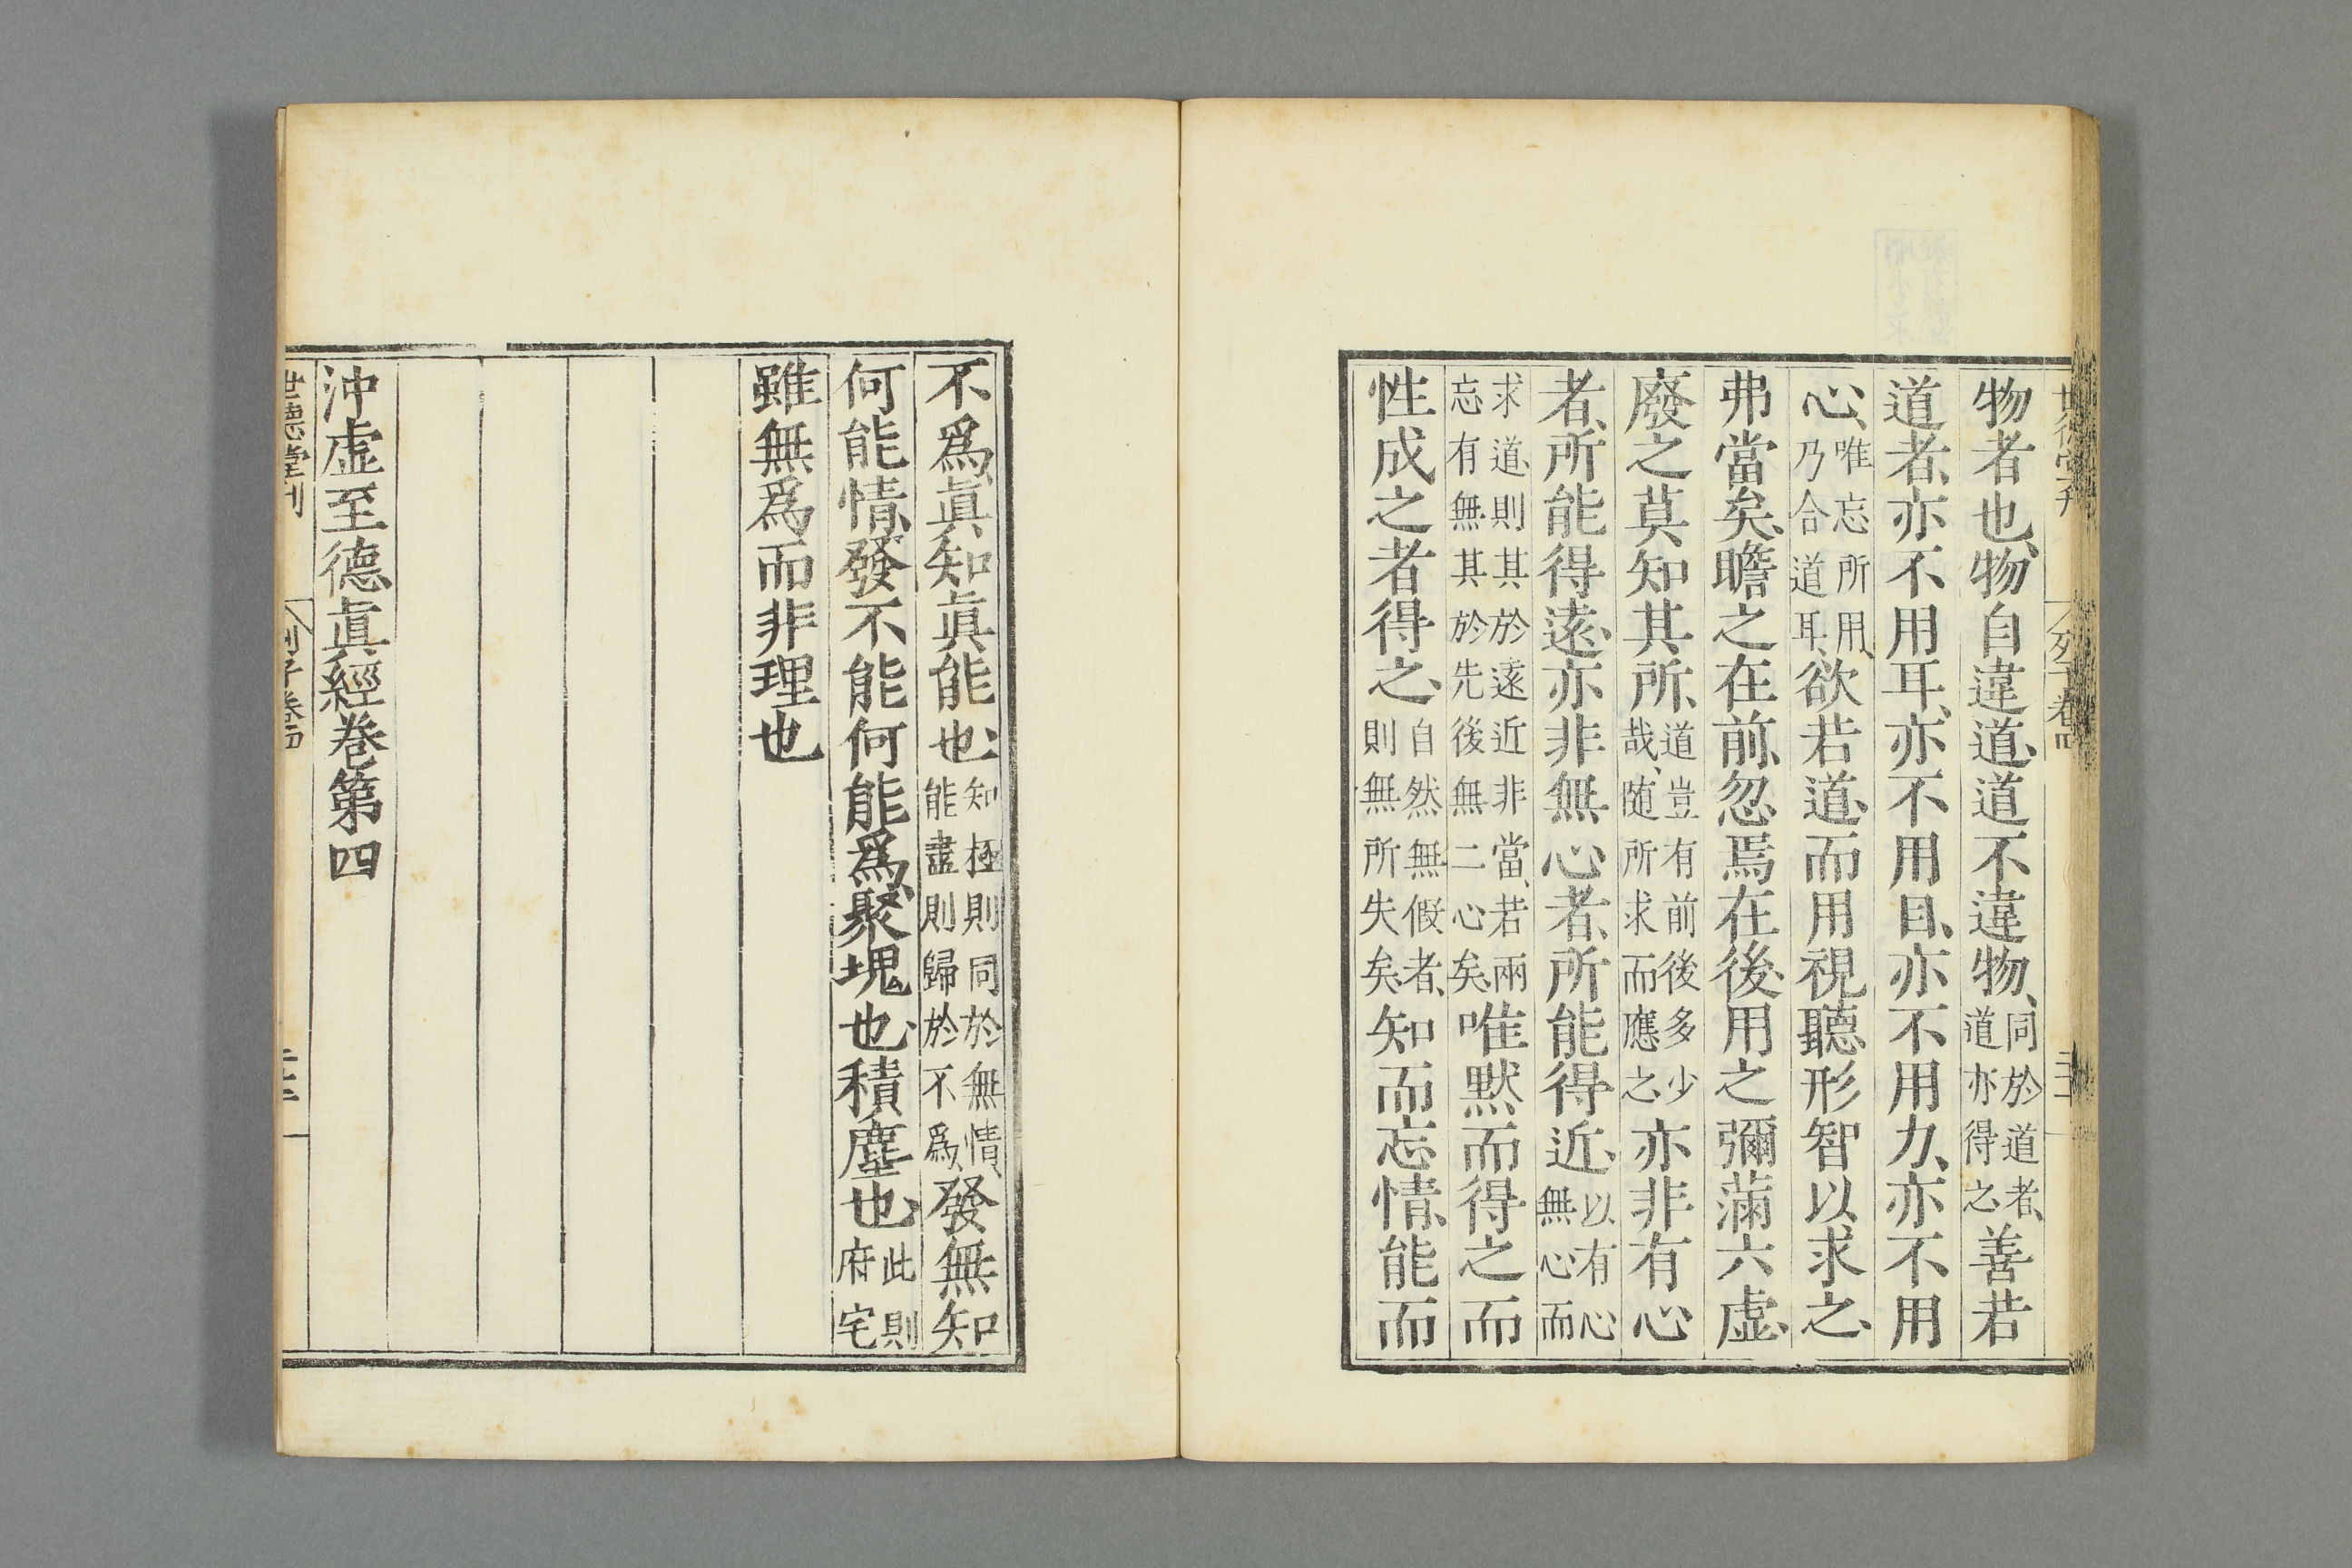 世德堂刊 列子卷四
物者也、物自違道、道不違物、同於道者、道亦得之善若
道者、亦不用耳、亦不用目、亦不用力、亦不用
心、唯忘所用、乃合道耳、欲若道、而用視聽形智以求之、
弗當矣、瞻之在前、忽焉在後、用之彌滿六虛、
廢之莫知其所、道豈有前後多少哉、隨所求而應之、亦非有心
者、所能得遠、亦非無心者、所能得近、以有心無心而
求道、則其於遠近非當、若兩忘有無其於先後無二心矣、唯默而得之而
性成之者得之、自然無假者、則無所失矣、知而忘情、能而
不爲、眞知眞能也、知極則同於無情、能盡則歸於不爲、發無知
何能情、發不能何能爲、聚塊也、積塵也、此則府宅
雖無爲而非理也
沖虛至德眞經卷第四
世德堂刊 列子卷四